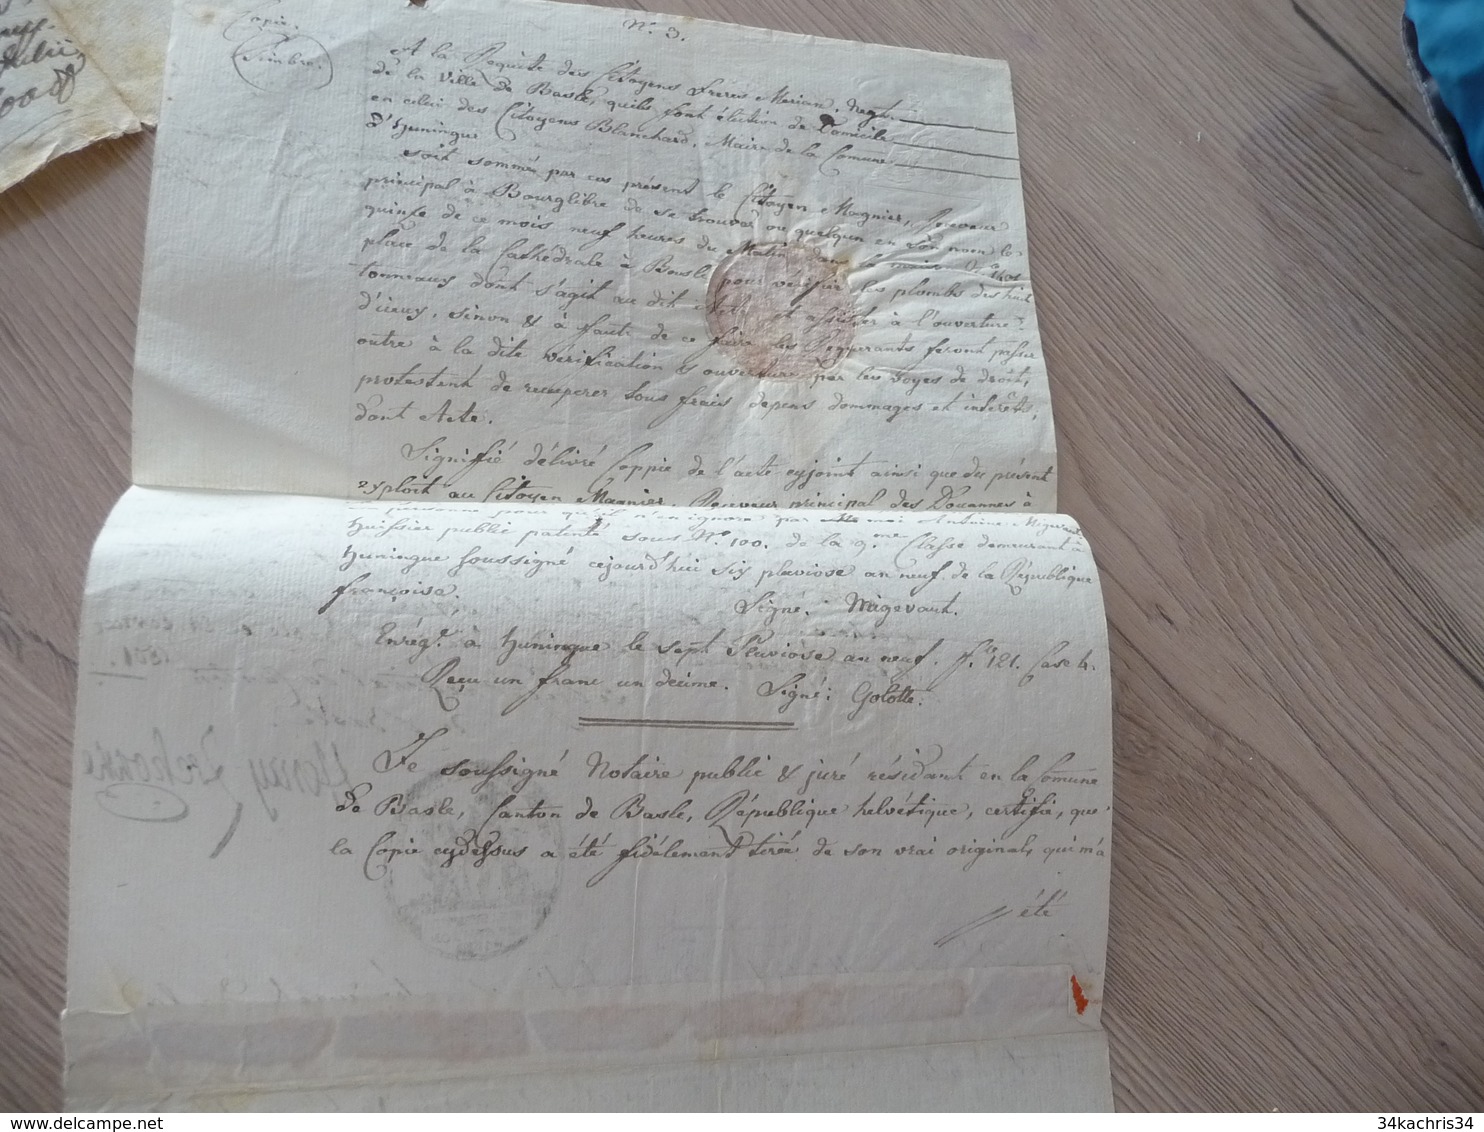 Copie.
Timbre.
N.° 3.
A la Requête des Citoyens Frères Merian, Negt.
de la Ville de Basle, quils font élection de Domicile
en celui des Citoyens Blanchard, Maire de la Comune
d'Huningue
soit sommé par ces présent le Citoyen Magnier, Receveur
principal à Bourglibre de se trouver ou quelqun en son nom le
quinze de ce mois neuf heures du Matin dans
place de la Cathédrale à Basle, pour vérifier les plombs des huit
tonneaux dont s'agit au dit et assister à l'ouverture
d'iceux, sinon & à faute de ce faire les Requerants feront passer
outre à la dite vérification & ouverture par les voyes de droit,
protestent de recuperer tous frais depens dommages et intérêts,
dont Acte.
Signifié délivré Coppie de l'acte cyjoint ainsi que du présent
exploit au Citoyen Magnier, Receveur principal des Douannes à
personne pour qu'il n'en ignore par moi Antoine Migevant
huissier public patenté sous N.° 100. de la 9.me Classe demeurant à
huningue soussigné cejourd'hui six pluviose an neuf de la République
françoise.
Signé. Migevant.
Enrég.é à huningue le sept Pluviôse an neuf. f.° 121. Case 4.
Reçu un franc un decime. Signé: Golotte.
Je soussigné Notaire public & juré résidant en la Comune
de Basle, Canton de Basle, République helvétique, certifie, que
la Copie cydessus a été fidélement tirée de son vrai original, qui m'a
été
34kachris34
34kachris34